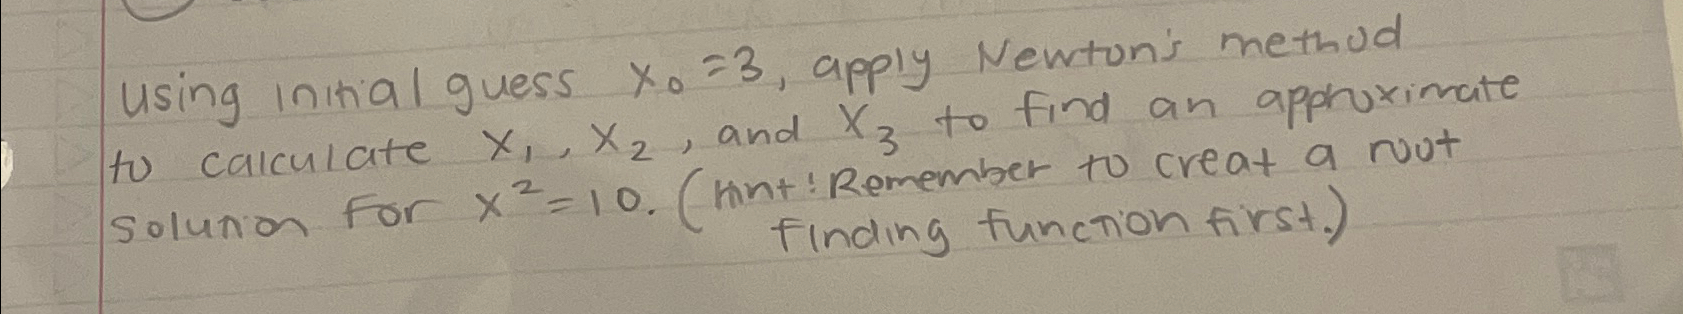 Using initial guess x₀ = 3, apply Newton's method
to calculate x₁, x₂, and x₃ to find an approximate
solution for x² = 10. (Hint: Remember to creat a root
finding function first.)